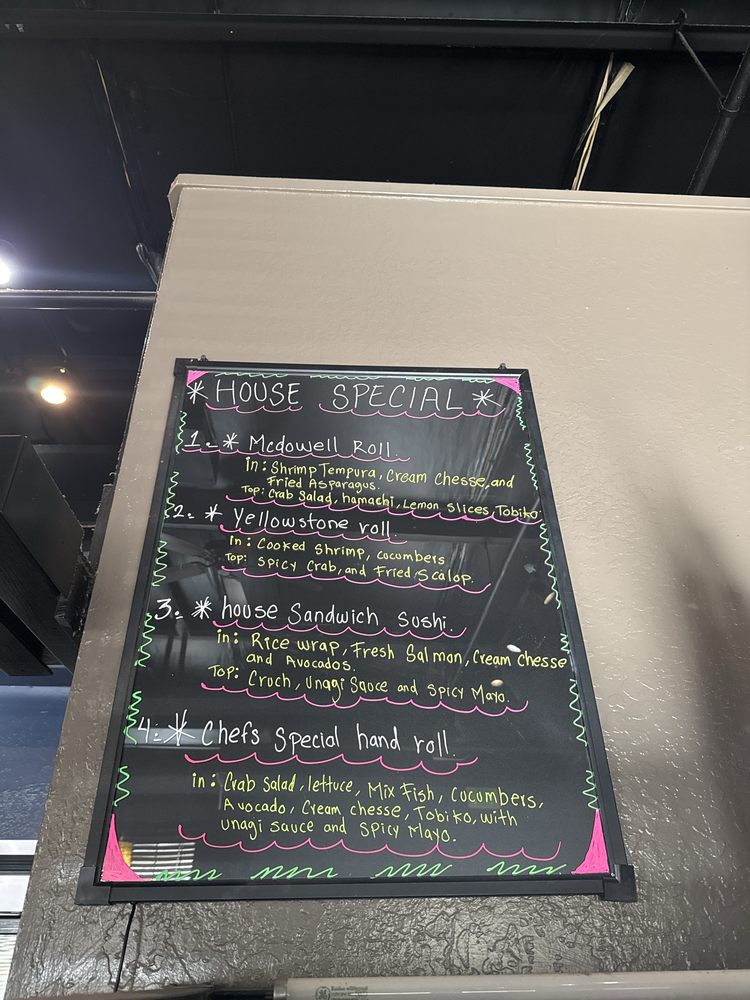 * HOUSE SPECIAL *
1. * Mcdowell Roll.
in: Shrimp Tempura, Cream Chesse, and
Fried Asparagus.
Top: Crab Salad, hamachi, Lemon Slices, Tobiko
2. * Yellowstone roll.
In: Cooked Shrimp, cucumbers
Top: Spicy Crab, and Fried Scalop.
3. * house Sandwich Sushi.
in: Rice wrap, Fresh Salmon, Cream Chesse
and Avocados.
Top: Cruch, Unagi Sauce and Spicy Mayo.
4. * Chefs Special hand roll.
in: Crab Salad, lettuce, Mix Fish, Cucumbers,
Avocado, Cream chesse, Tobiko, with
unagi sauce and Spicy Mayo.